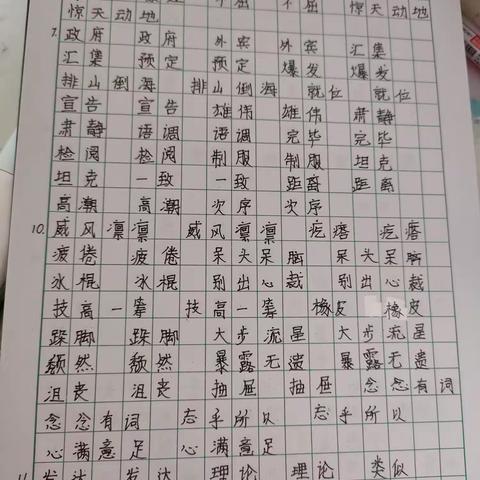 惊天动地 不屈 不屈 惊天动地
7.政府 政府 外宾 外宾 汇集
汇集 预定 预定 爆发 爆发
排山倒海 排山倒海 就位 就位
宣告 宣告 雄伟 雄伟 肃静
肃静 语调 语调 完毕 完毕
检阅 检阅 制服 制服 坦克
坦克 一致 一致 距离 距离
高潮 高潮 次序 次序
10.威风凛凛 威风凛凛 疙瘩 疙瘩
疲倦 疲倦 呆头呆脑 呆头呆脑
冰棍 冰棍 别出心裁 别出心裁
技高一筹 技高一筹 橡皮 橡皮
跺脚 跺脚 大步流星 大步流星
颓然 颓然 暴露无遗 暴露无遗
沮丧 沮丧 抽屉 抽屉 念念有词
念念有词 忘乎所以 忘乎所以
心满意足 心满意足
11.发达 发达 理论 理论 类似